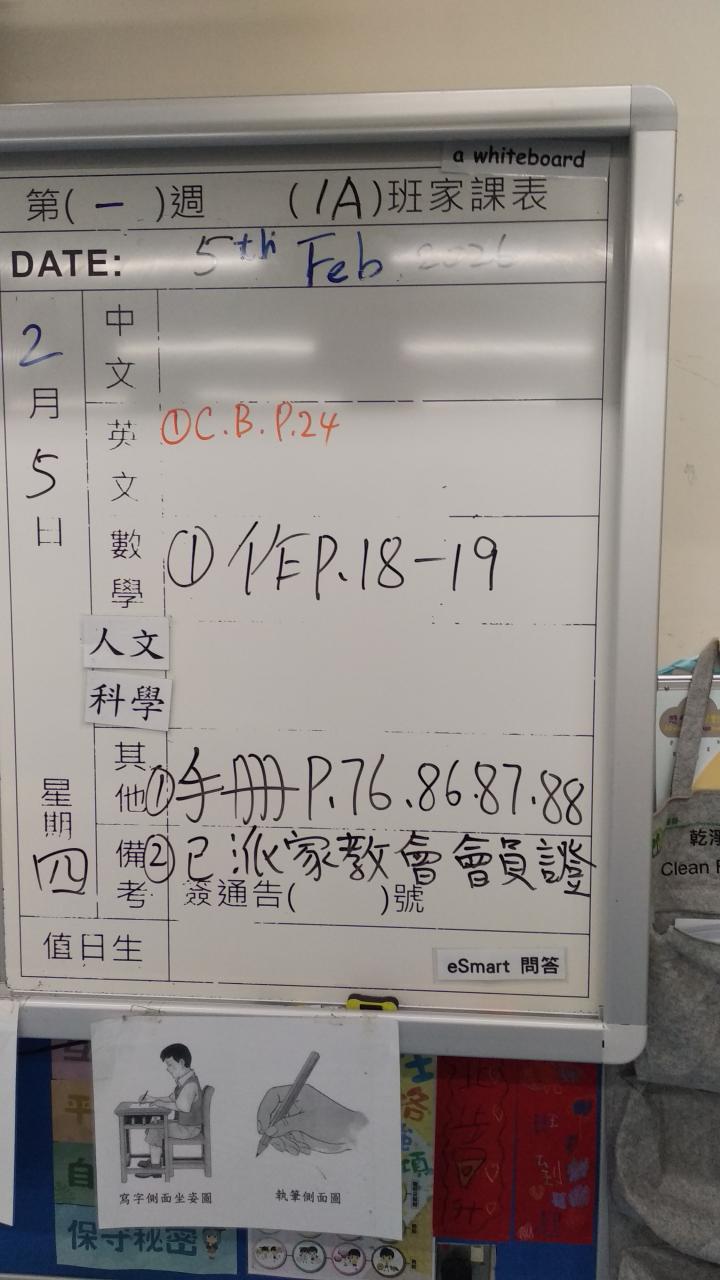 a whiteboard
第( 一 )週 (1A)班家課表
DATE: 5th Feb 2026
2月5日
星期四
中文
英文 ①C.B.P.24
數學 ①作P.18-19
人文
科學
其他 ①手冊P.76.86.87.88
備考 ②已派家教會會員證
簽通告( )號
值日生
eSmart 問答
乾淨
Clean
寫字側面坐姿圖 執筆側面圖
保守秘密